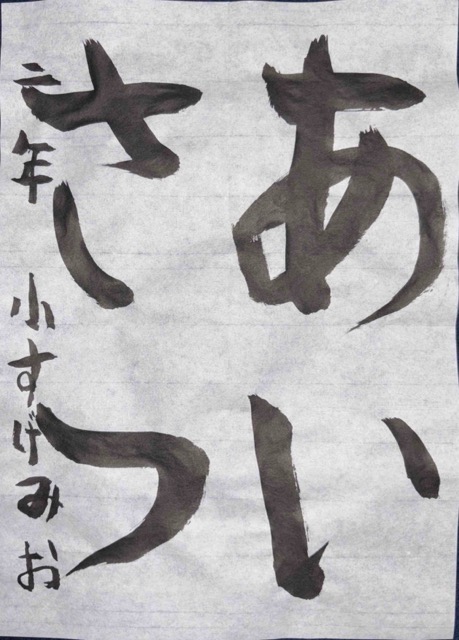 あい
さつ
二年 小すげみお